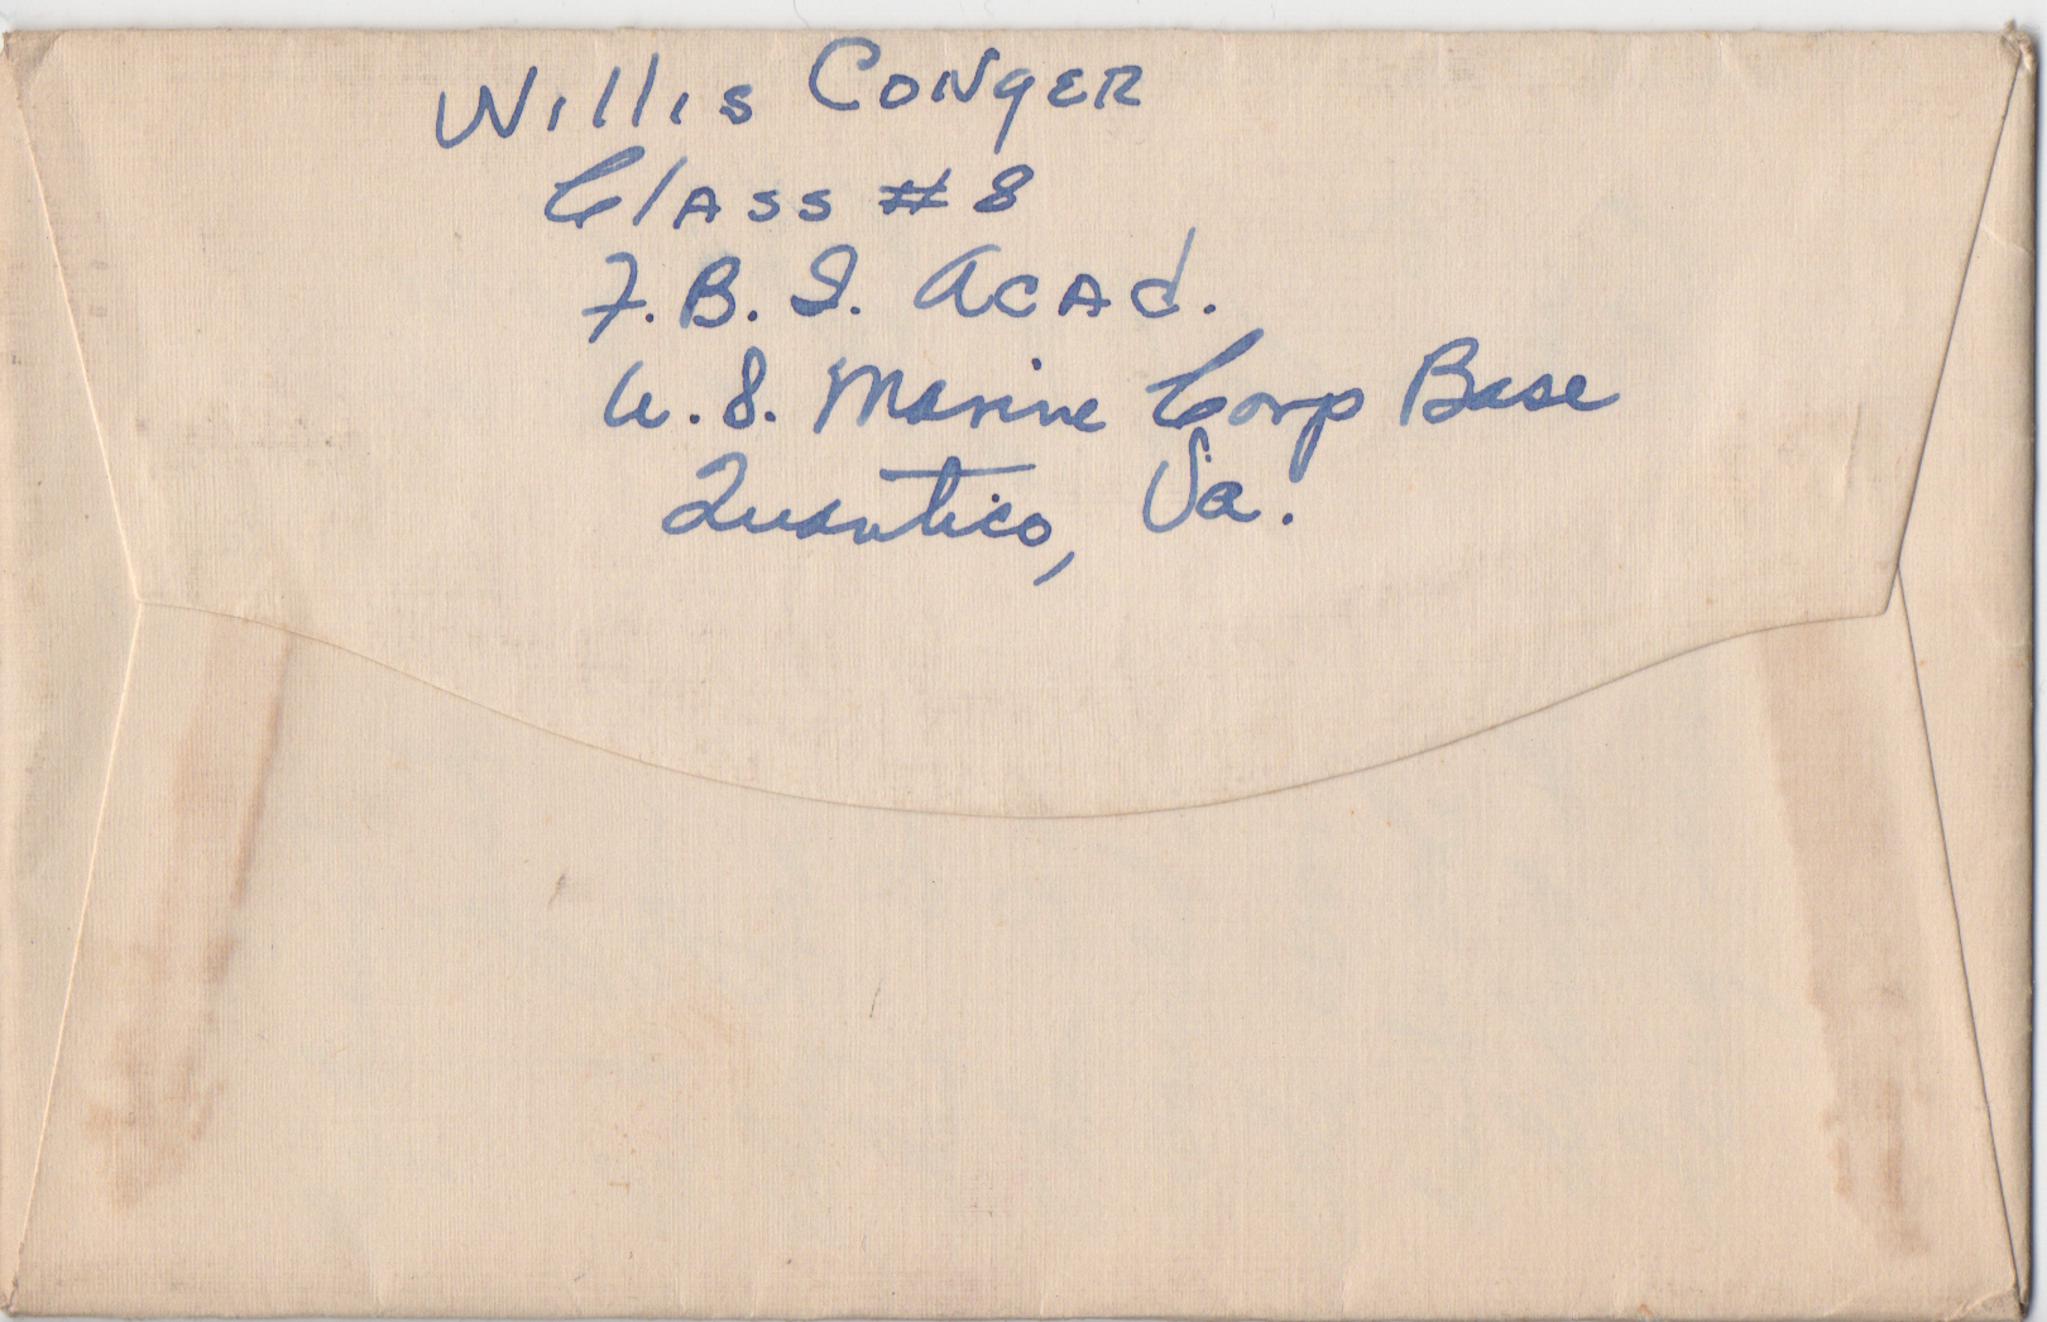 Willis Conger
Class #8
F.B.I. Acad.
U.S. Marine Corp Base
Quantico, Va.